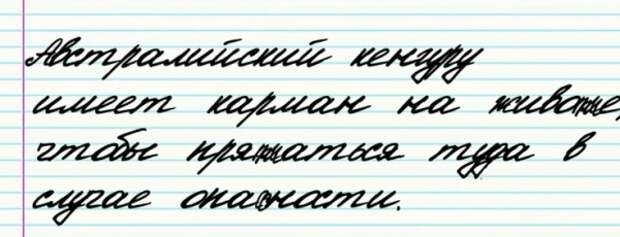 Австралийский кенгуру
имеет карман на живате,
чтобы прятаться туда в
случае опасности.